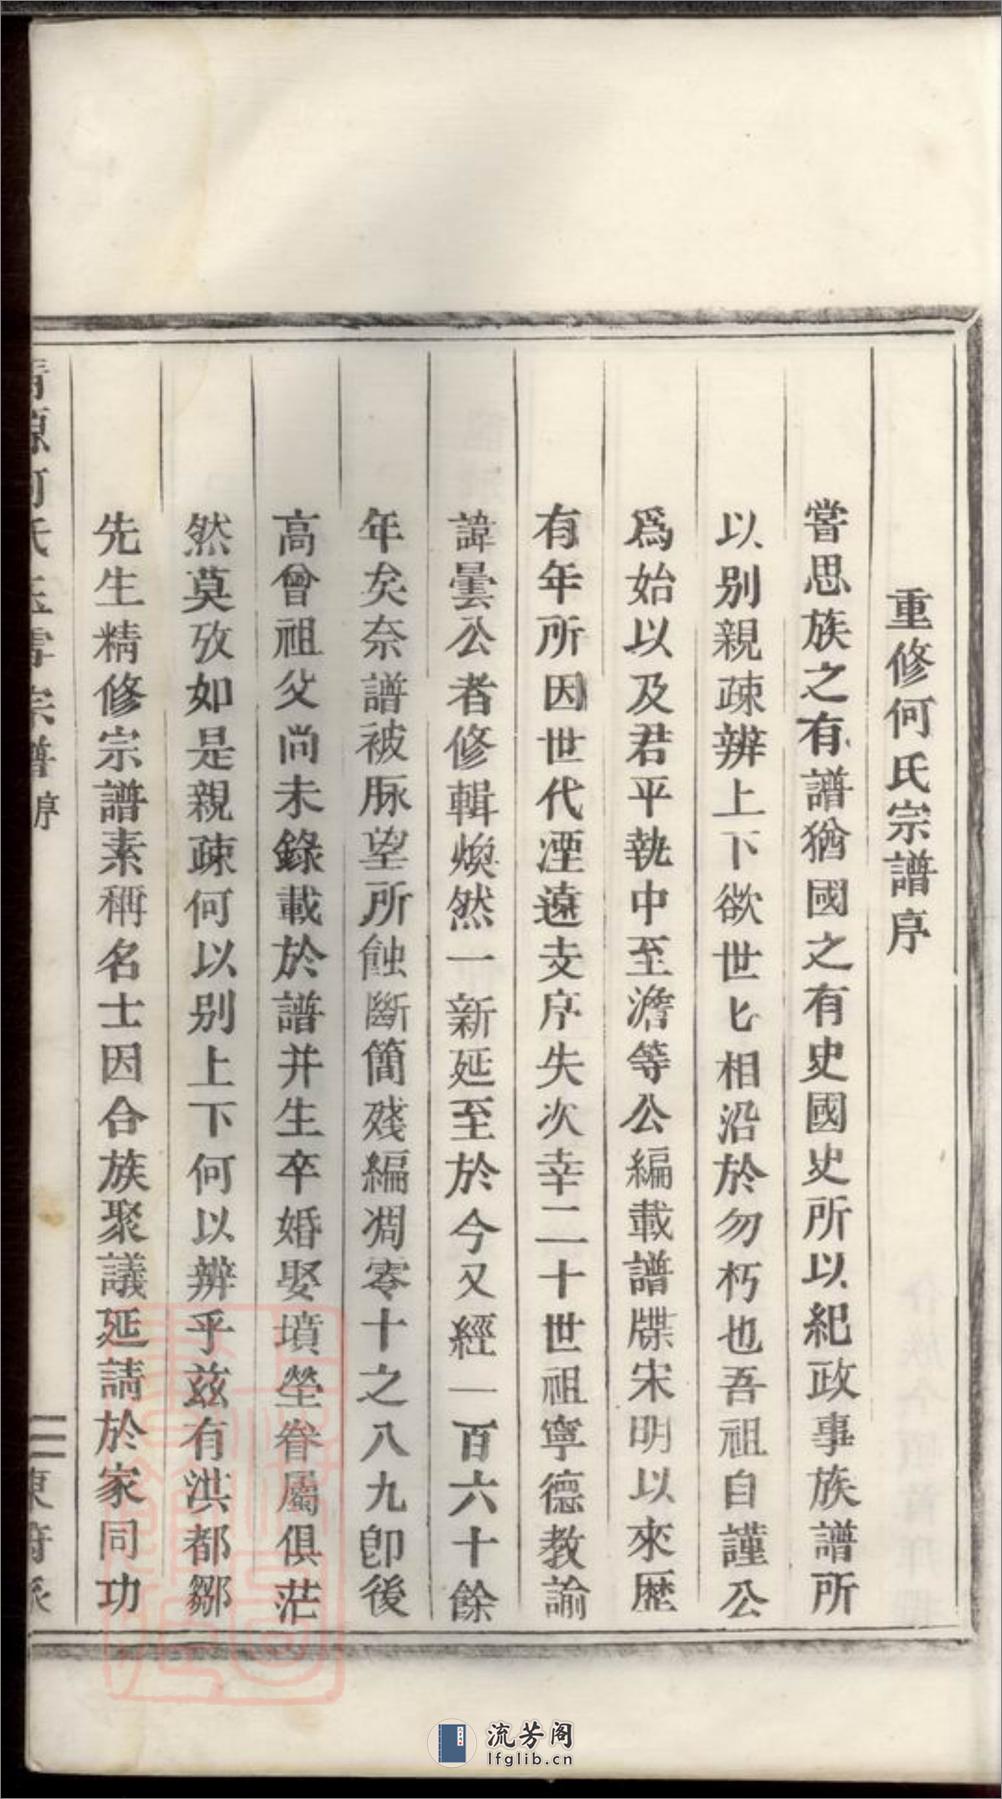 重修何氏宗譜序
嘗思族之有譜猶國之有史國史所以紀政事族譜所
以别親疎辨上下欲世匕相沿於勿朽也吾祖自謹公
爲始以及君平執中至澹等公編載譜牒宋明以來歷
有年所因世代湮遠支序失次幸二十世祖寧德教諭
諱曇公者修輯煥然一新延至於今又經一百六十餘
年矣奈譜被脉望所蝕斷簡殘編凋零十之八九卽後
高曾祖父尚未錄載於譜并生卒婚娶墳塋眷屬俱茫
然莫攷如是親疎何以别上下何以辨乎兹有洪都鄒
先生精修宗譜素稱名士因合族聚議延請於家同功
宗譜 序
二
流芳阁
lfglib.cn